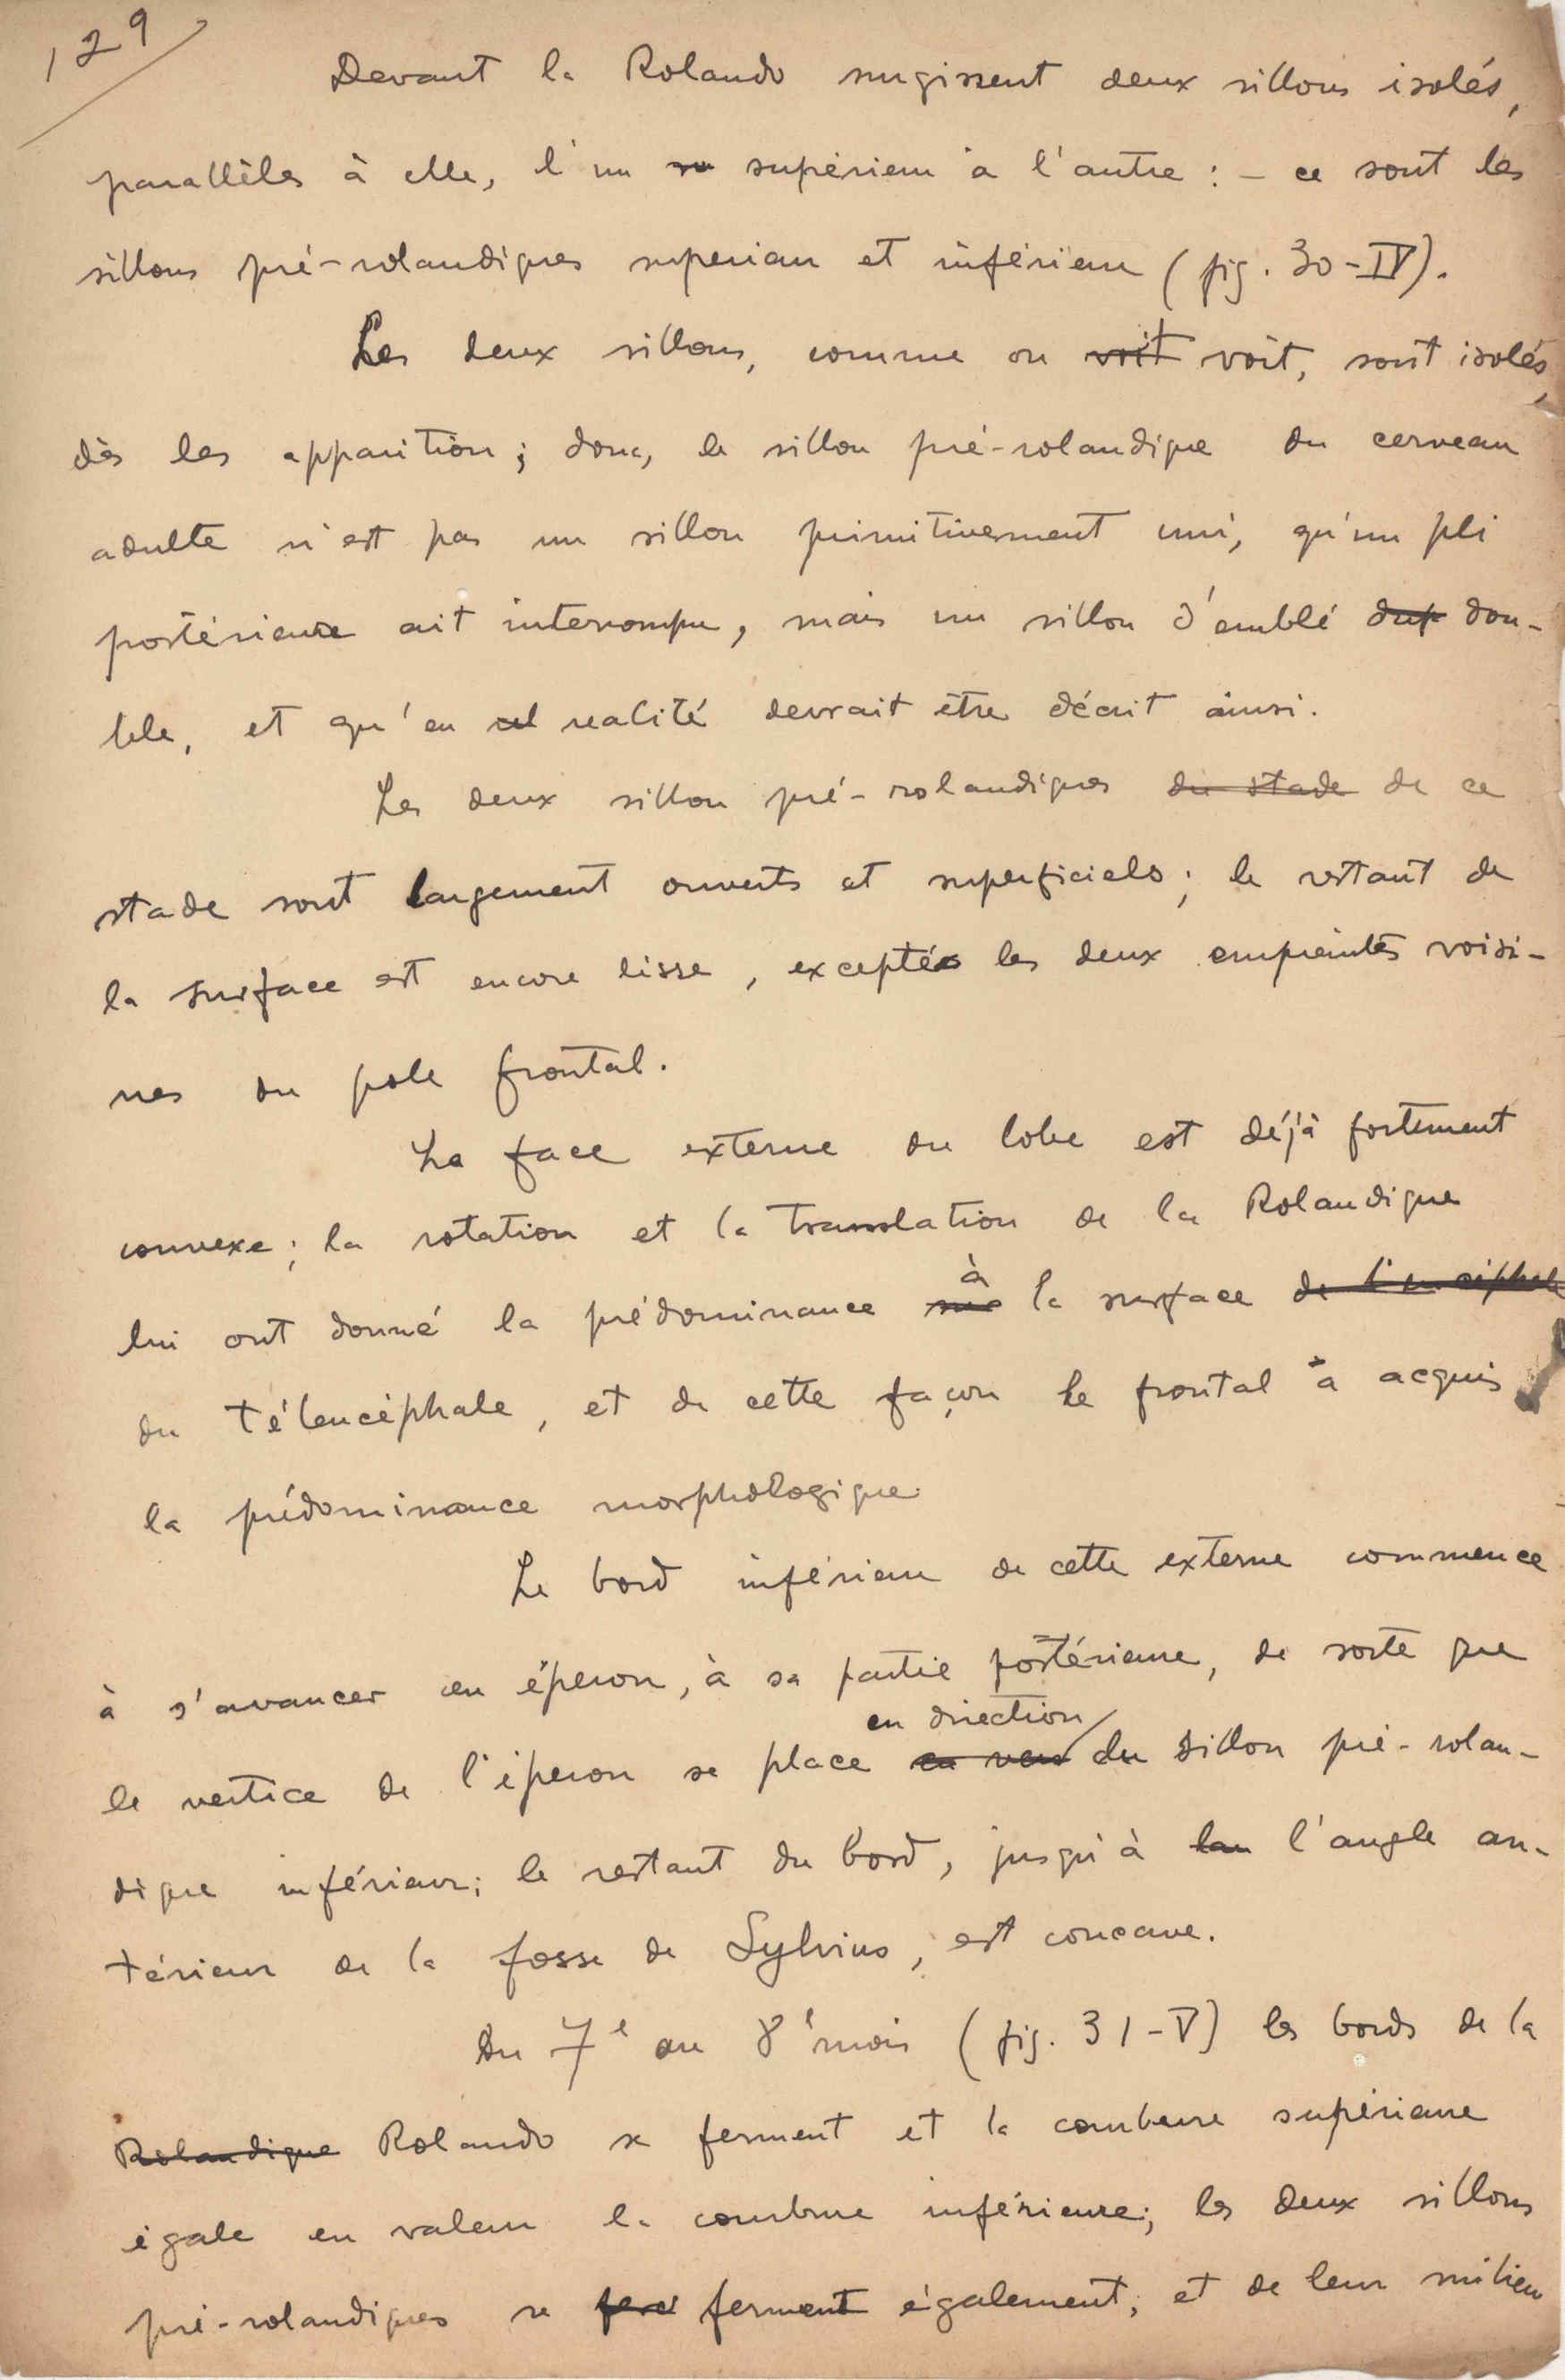 129
Devant la Rolando surgissent deux sillons isolés,
parallèles à elle, l'un su supérieur à l'autre : – ce sont les
sillons pré-rolandiques superieur et inférieur (fig. 30-IV).
Les deux sillons, comme on voit voit, sont isolés,
dès les apparition ; donc, le sillon pré-rolandique du cerveau
adulte n'est pas un sillon primitivement uni, qu'un pli
postérieure ait interrompu, mais un sillon d'emblé dup dou-
ble, et qu'en realité devrait être décrit ainsi.
Les deux sillon pré-rolandiques du stade de ce
stade sont largement ouverts et superficiels ; le restant de
la surface est encore lisse, exceptés les deux empreintes voisi-
nes du pole frontal.
La face externe du lobe est déjà fortement
convexe ; la rotation et la translation de la Rolandique
lui ont donné la prédominance à la surface
du télencéphale, et de cette façon le frontal à acquis
la prédominance morphologique.
Le bord inférieur de cette externe commence
à s'avancer en éperon, à sa partie postérieure, de sorte que
en direction
le vertice de l'éperon se place en vers du sillon pré-rolan-
dique inférieur ; le restant du bord, jusqu'à l'angle an-
térieur de la fosse de Sylvius, est concave.
Du 7e au 8e mois (fig. 31-V) les bords de la
Rolandique Rolando se ferment et la courbure supérieure
égale en valeur la courbure inférieure ; les deux sillons
pré-rolandiques se fer ferment également, et de leur milieu